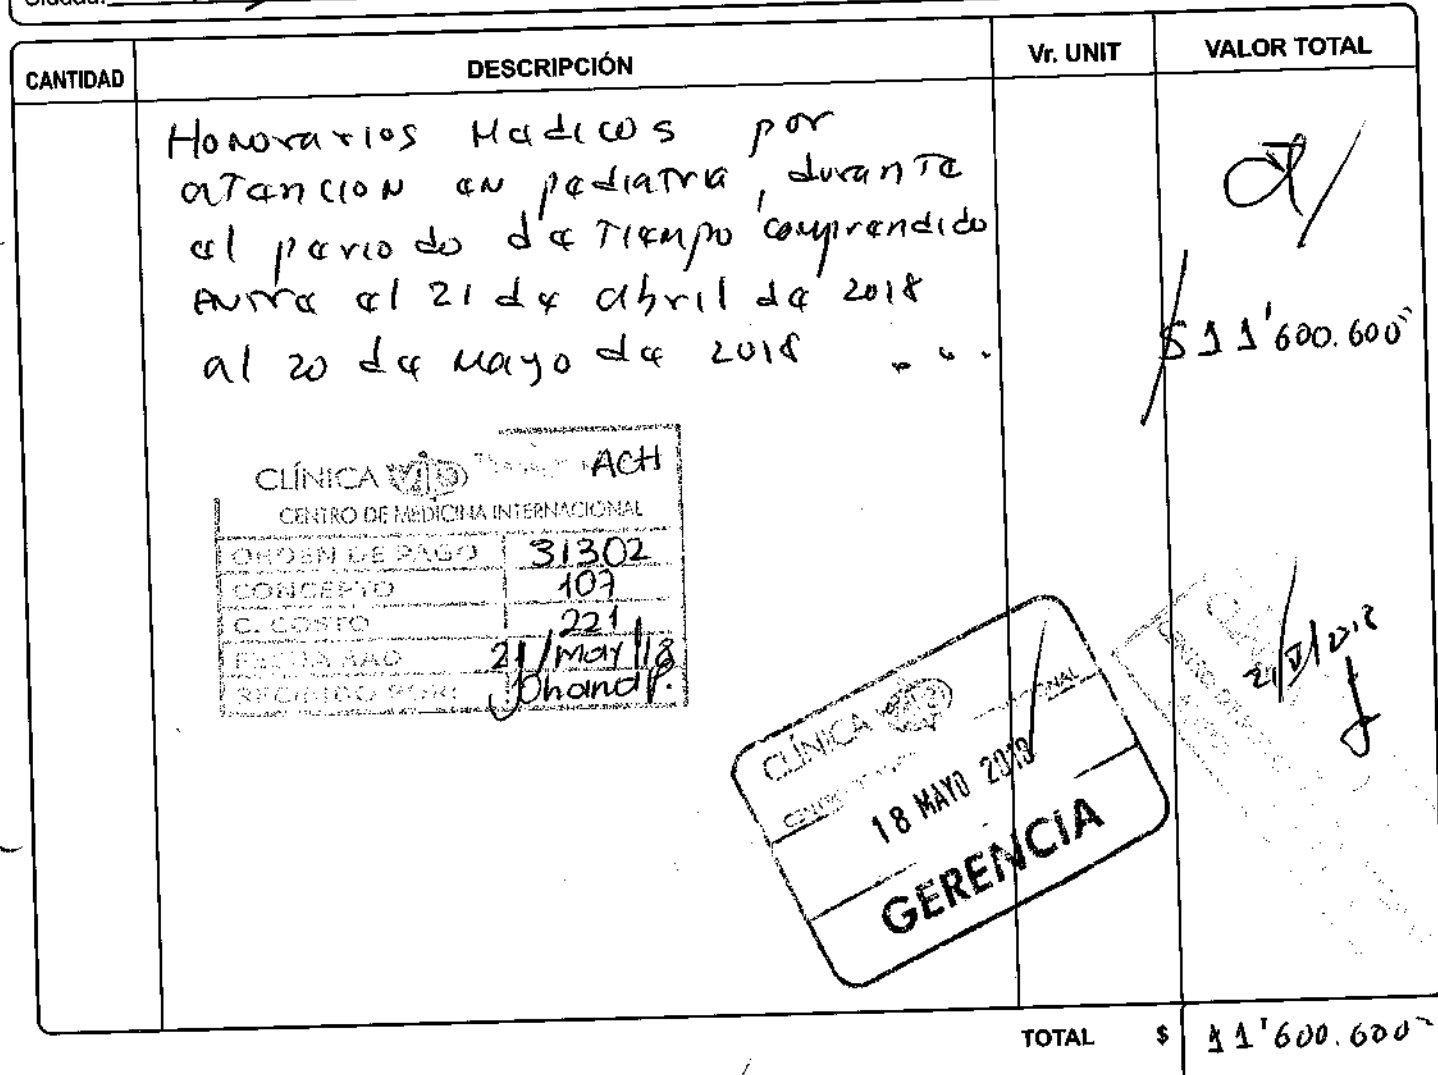 Ciudad:
CANTIDAD DESCRIPCIÓN Vr. UNIT VALOR TOTAL
Honorarios Medicos por
atencion en pediatria, durante
el periodo de Tiempo comprendido
entre el 21 de abril de 2018
al 20 de mayo de 2018 ... $11'600.600
CLÍNICA VIP ACH
CENTRO DE MEDICINA INTERNACIONAL
ORDEN DE PAGO 31302
CONCEPTO 107
C. COSTO 221
21/May/18
RECIBIDO POR: Johana P.
21/V/2018
CLÍNICA
18 MAYO 2018
GERENCIA
TOTAL $ 11'600.600